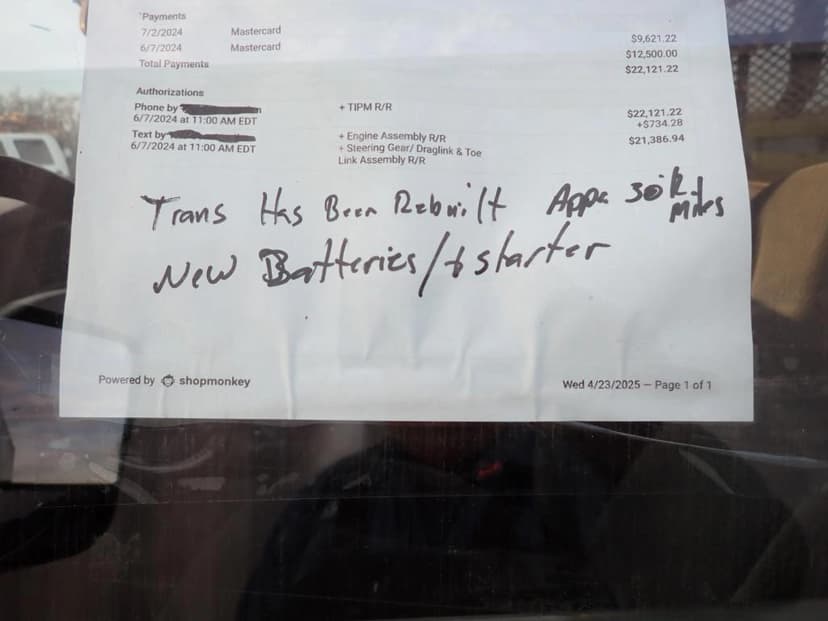 Payments
7/2/2024 Mastercard $9,621.22
6/7/2024 Mastercard $12,500.00
Total Payments $22,121.22
Authorizations
Phone by + TIPM R/R $22,121.22
6/7/2024 at 11:00 AM EDT +$734.28
Text by + Engine Assembly R/R $21,386.94
6/7/2024 at 11:00 AM EDT + Steering Gear/ Draglink & Toe
Link Assembly R/R
Trans Has Been Rebuilt 30k Miles
New Batteries/+ starter
Powered by shopmonkey Wed 4/23/2025 — Page 1 of 1